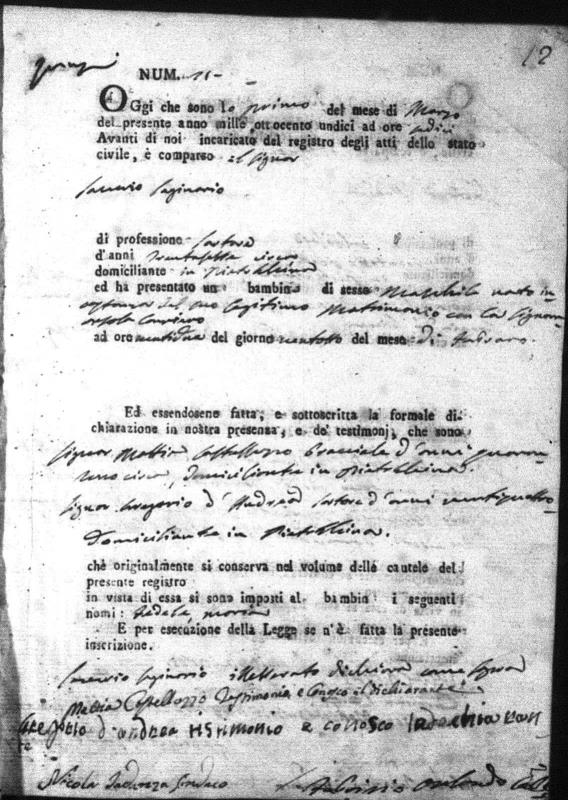 12
NUM. 15
OGgi che sono lo primo del mese di Marzo
del presente anno mille ottocento undici ad ore
Avanti di noi incaricato del registro degli atti dello stato
civile, è comparso il Signor
Saginario
di professione Sartore
d'anni trentasette circa
domiciliante in Pietrelcina
ed ha presentato un bambino di sesso Maschile nato in
costanza del suo legittimo Matrimonio con la Signora
Orsola
ad ore ventidue del giorno ventotto del mese di
Ed essendosene fatta, e sottoscritta la formale di-
chiarazione in nostra presenza, e de' testimonj, che sono
Signor Mattia Castelluzzo Bracciale d'anni
circa, domiciliante in Pietrelcina
Signor Gregorio d'Andrea Sartore d'anni ventiquattro
Domiciliante in Pietrelcina.
che originalmente si conserva nel volume delle cautele del
presente registro
in vista di essa si sono imposti al bambin i seguenti
nomi:
E per esecuzione della Legge se n'è fatta la presente
inscrizione.
Saginario illetterato dichiara come sopra
Mattia Castelluzzo Testimonio e Conosco il dichiarante
Gregorio d'andrea testimonio e conosco
Nicola Sindaco
Orlando